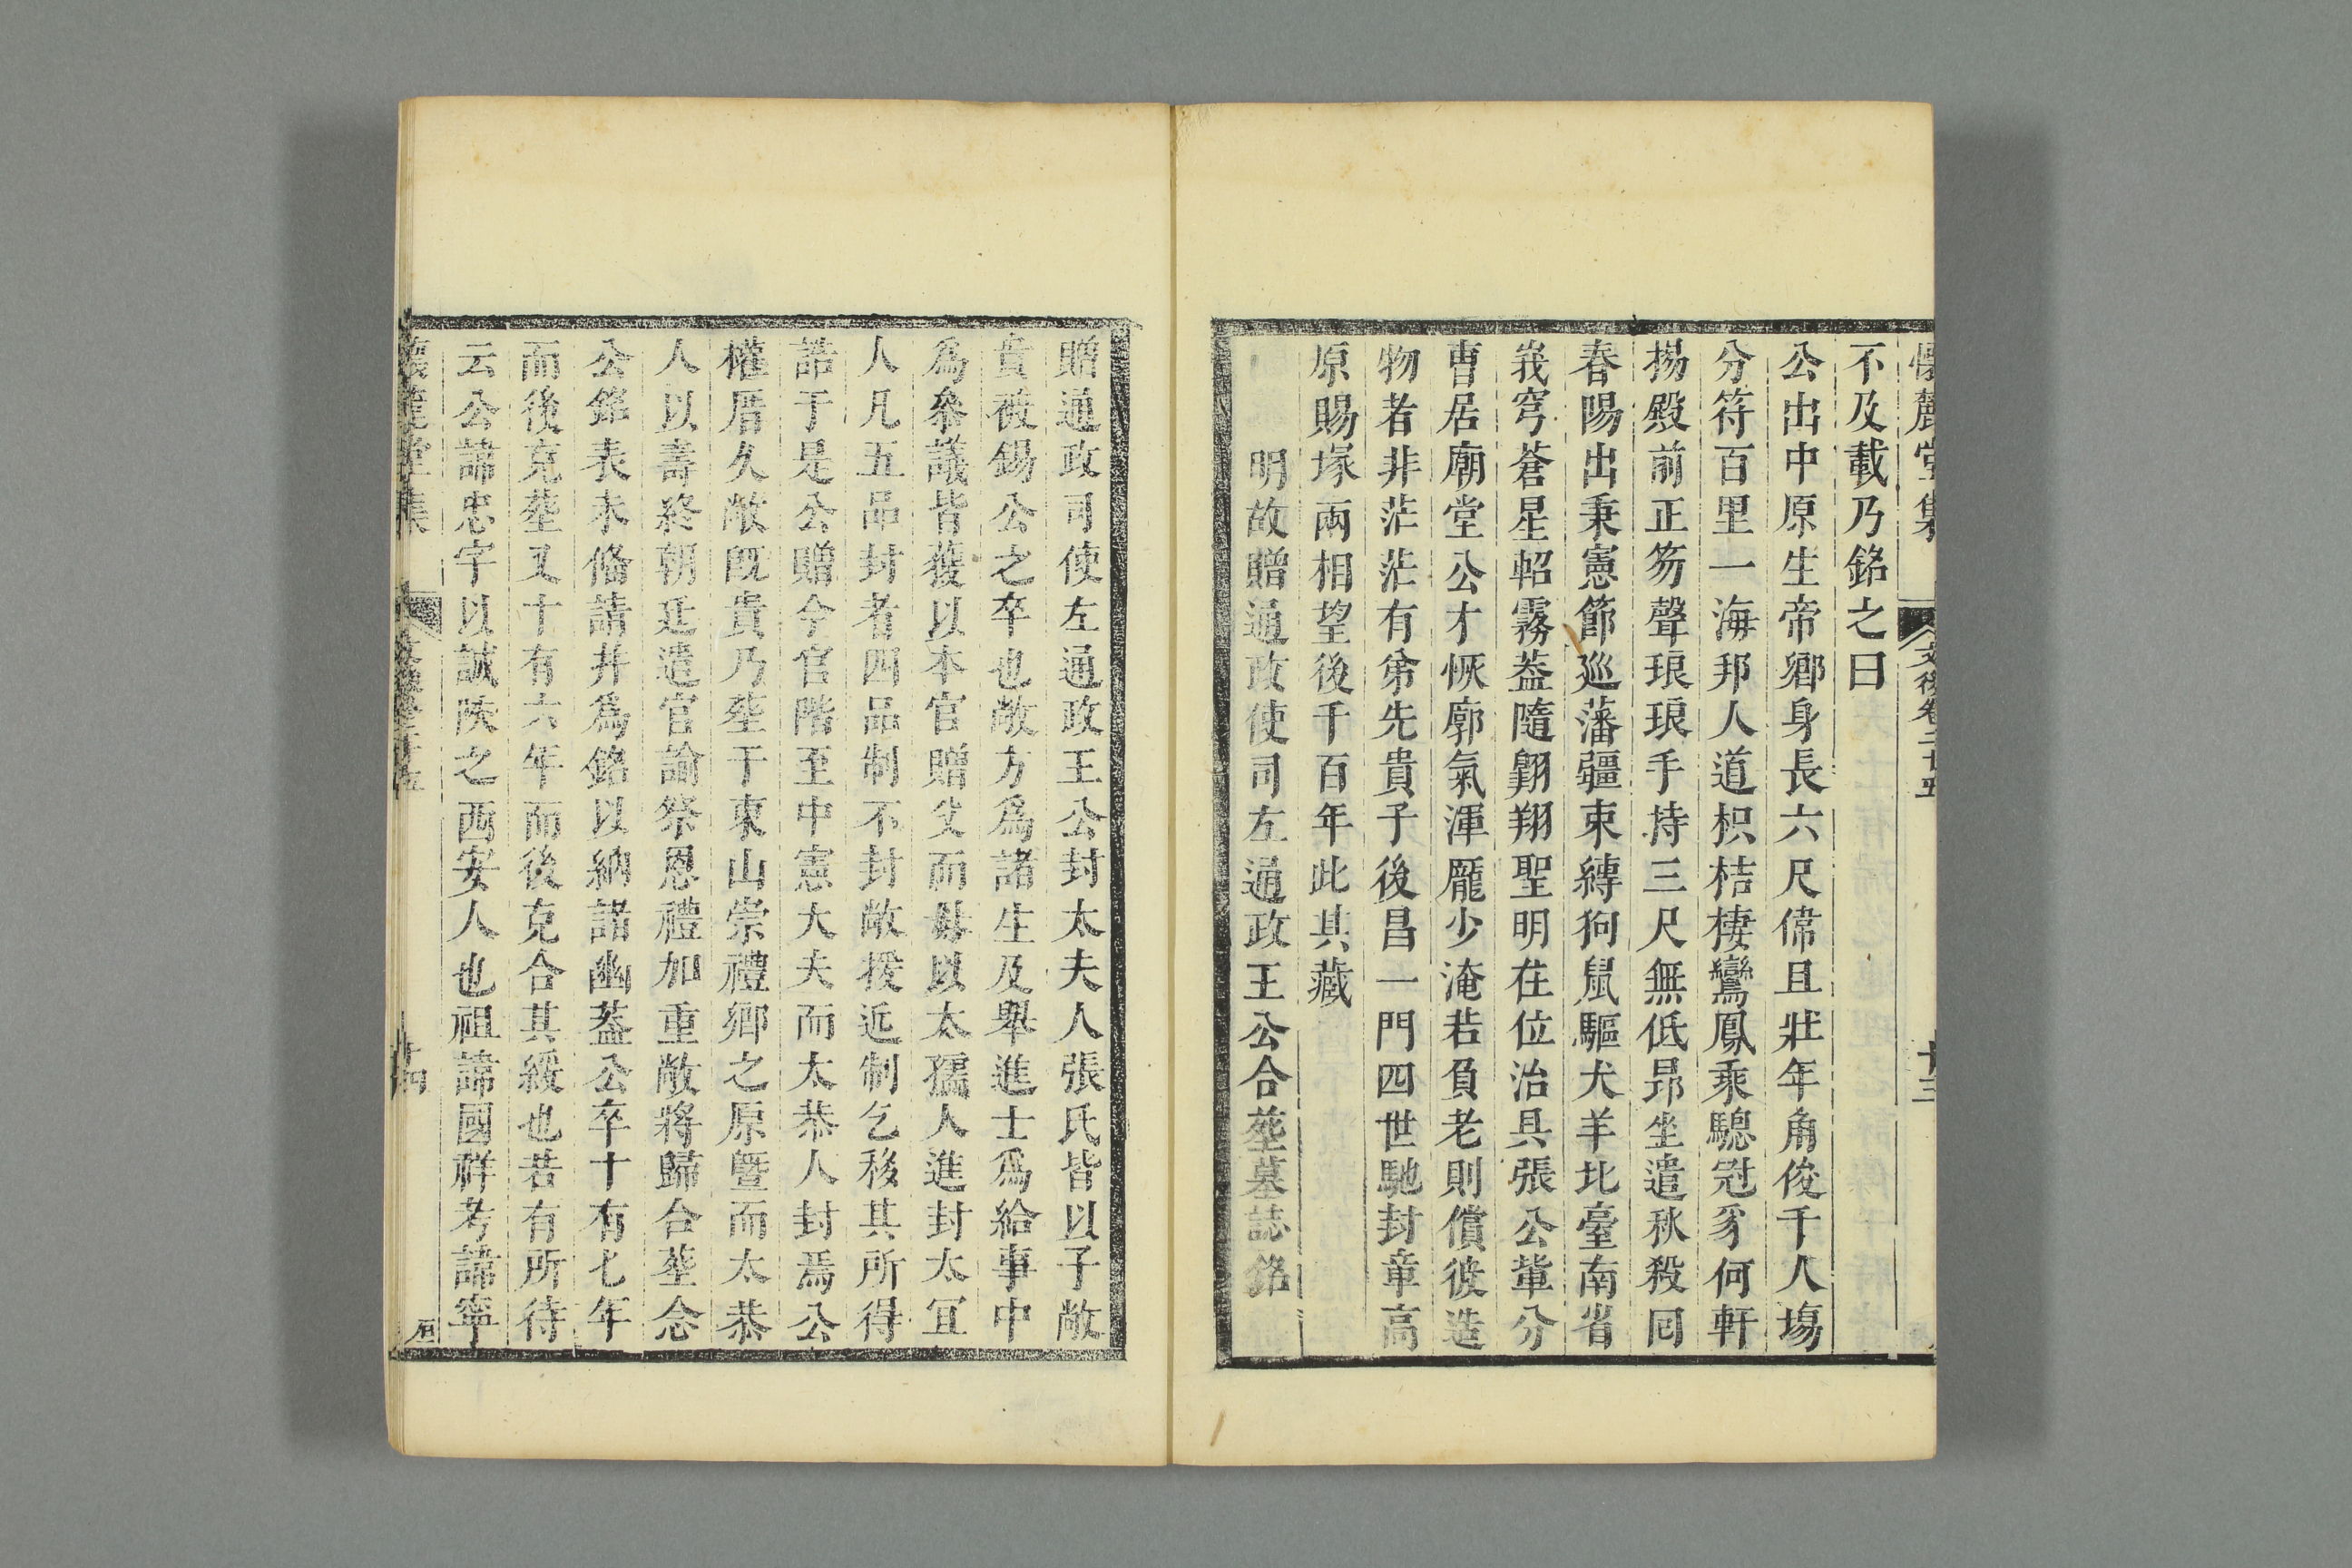 懷麓堂集 文後卷二十五 廿三
不及載乃銘之曰
公出中原生帝鄉身長六尺偉且壯年甬俊千人塲
分符百里一海邦人道枳桔棲鸞鳳乘驄冠豸何軒
揚殿前正笏聲琅琅手持三尺無低昂坐遣秋殺囘
春陽出秉憲節巡藩疆束縳狗鼠驅犬羊北臺南省
峩穹蒼星軺霧葢隨翺翔聖明在位治具張公軰分
曹居廟堂公才恢廓氣渾厖少淹若負老則償彼造
物者非茫茫有弟先貴子後昌一門四世馳封章高
原賜塚兩相望後千百年此其藏
明故贈通政使司左通政王公合塟墓誌銘
贈通政司使左通政王公封太夫人張氏皆以子敞
貴被錫公之卒也敞方爲諸生及舉進士爲給事中
爲叅議皆獲以本官贈父而母以太孺人進封太冝
人凡五品封者四品制不封敞援近制乞移其所得
誥于是公贈今官階至中憲大夫而太恭人封焉公
權厝久敞旣貴乃塟于東山崇禮鄉之原曁而太恭
人以壽終朝廷遣官諭祭恩禮加重敞將歸合塟念
公銘表未俻請幷爲銘以納諸幽葢公卒十有七年
而後克塟又十有六年而後克合其緩也若有所待
云公諱忠字以誠陜之西安人也祖諱國祥考諱寧
懷麓堂集 十四